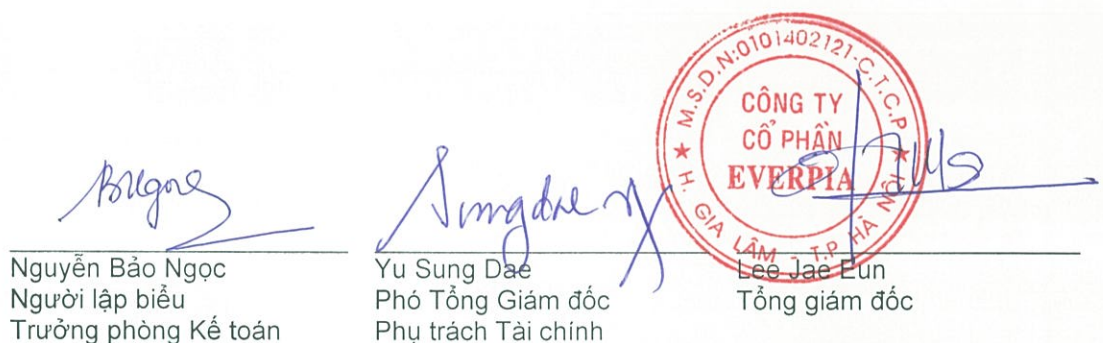 M.S.D.N:0101402121-C.T.C.P
CÔNG TY
CỔ PHẦN
EVERPIA
H. GIA LÂM - T.P HÀ NỘI
Nguyễn Bảo Ngọc
Người lập biểu
Trưởng phòng Kế toán
Yu Sung Dae
Phó Tổng Giám đốc
Phụ trách Tài chính
Lee Jae Eun
Tổng giám đốc